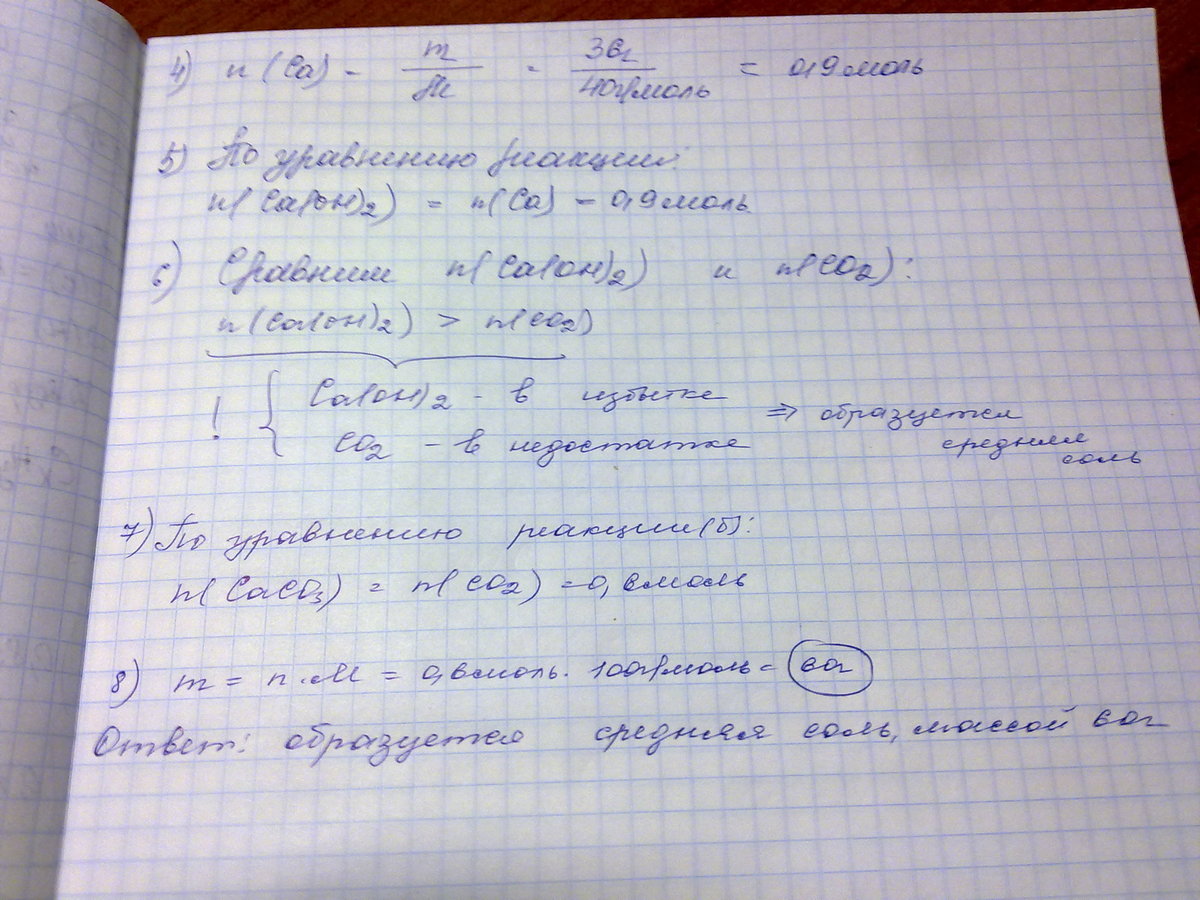 4) n (Ca) = m / M = 36г / 40г/моль = 0,9 моль
5) По уравнению реакции:
n(Ca(OH)2) = n(Ca) = 0,9 моль
6) Сравним n(Ca(OH)2) и n(CO2):
n(Ca(OH)2) > n(CO2)
! { Ca(OH)2 - в избытке
CO2 - в недостатке => образуется средняя соль
7) По уравнению реакции (б):
n(CaCO3) = n(CO2) = 0,6 моль
8) m = n · M = 0,6 моль · 100г/моль = 60г
Ответ: образуется средняя соль, массой 60г